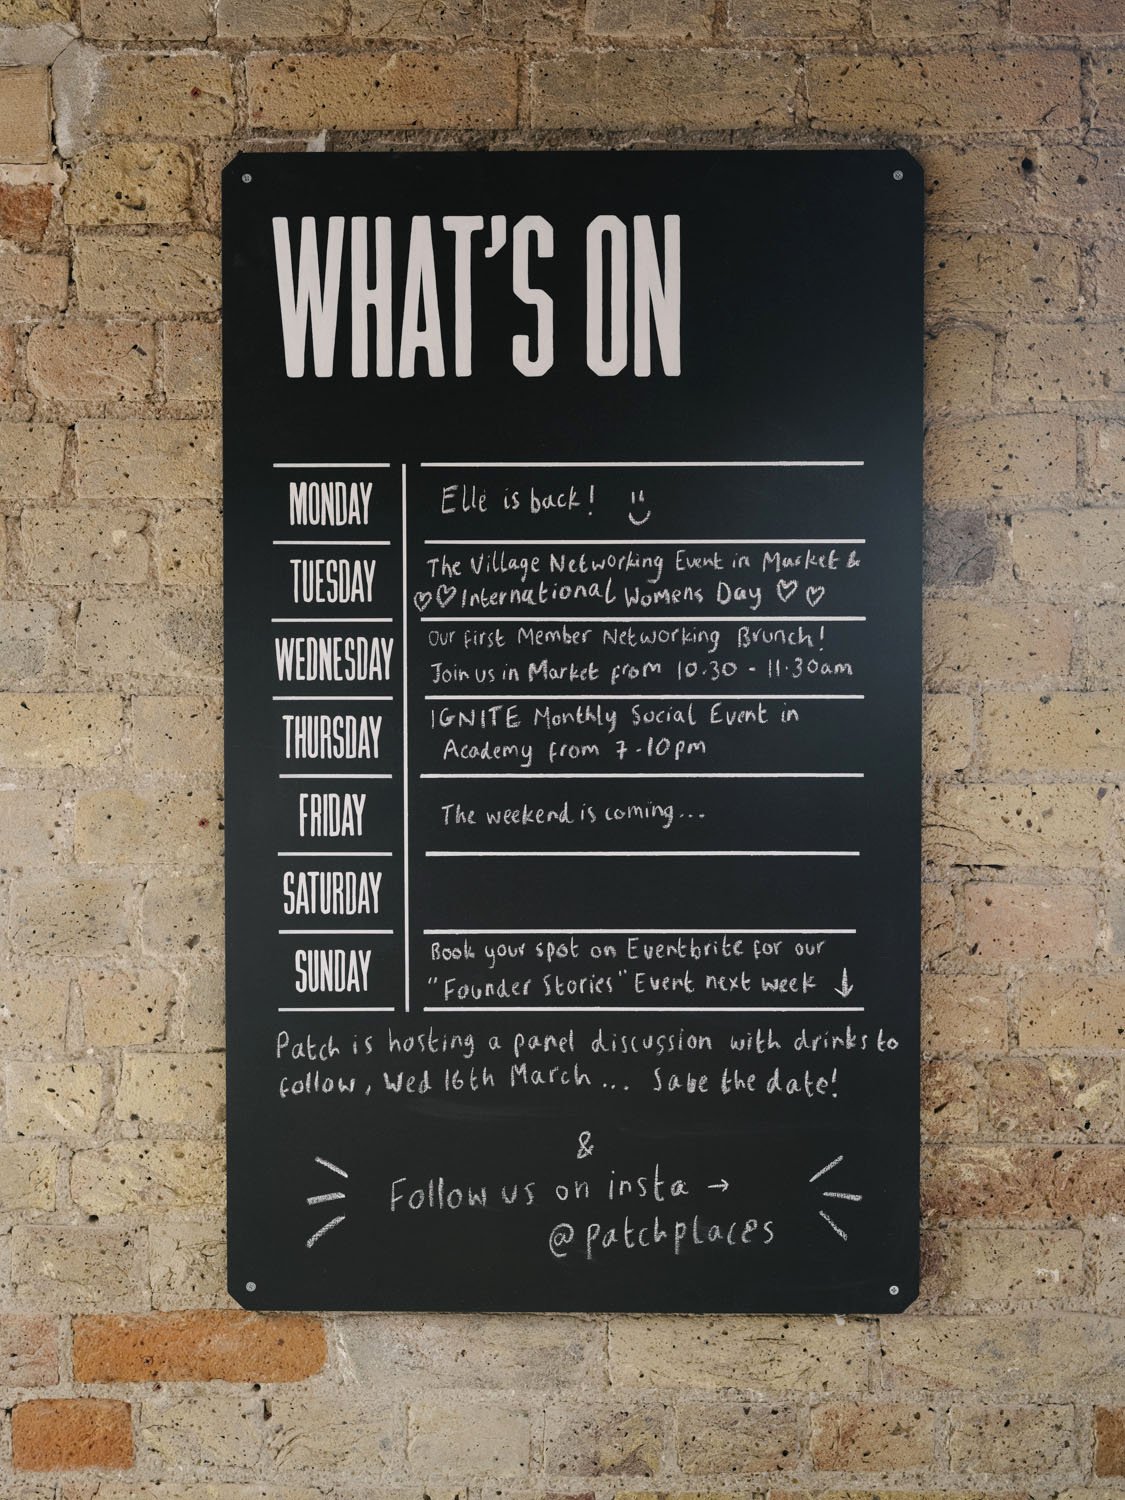 WHAT'S ON
MONDAY
Elle is back!
TUESDAY
The Village Networking Event in Market &
♡♡International Womens Day ♡♡
WEDNESDAY
Our first Member Networking Brunch!
Join us in Market from 10.30 - 11.30am
THURSDAY
IGNITE Monthly Social Event in
Academy from 7-10pm
FRIDAY
The weekend is coming...
SATURDAY
SUNDAY
Book your spot on Eventbrite for our
"Founder Stories" Event next week ↓
Patch is hosting a panel discussion with drinks to
follow, Wed 16th March... Save the date!
&
Follow us on insta →
@patchplaces